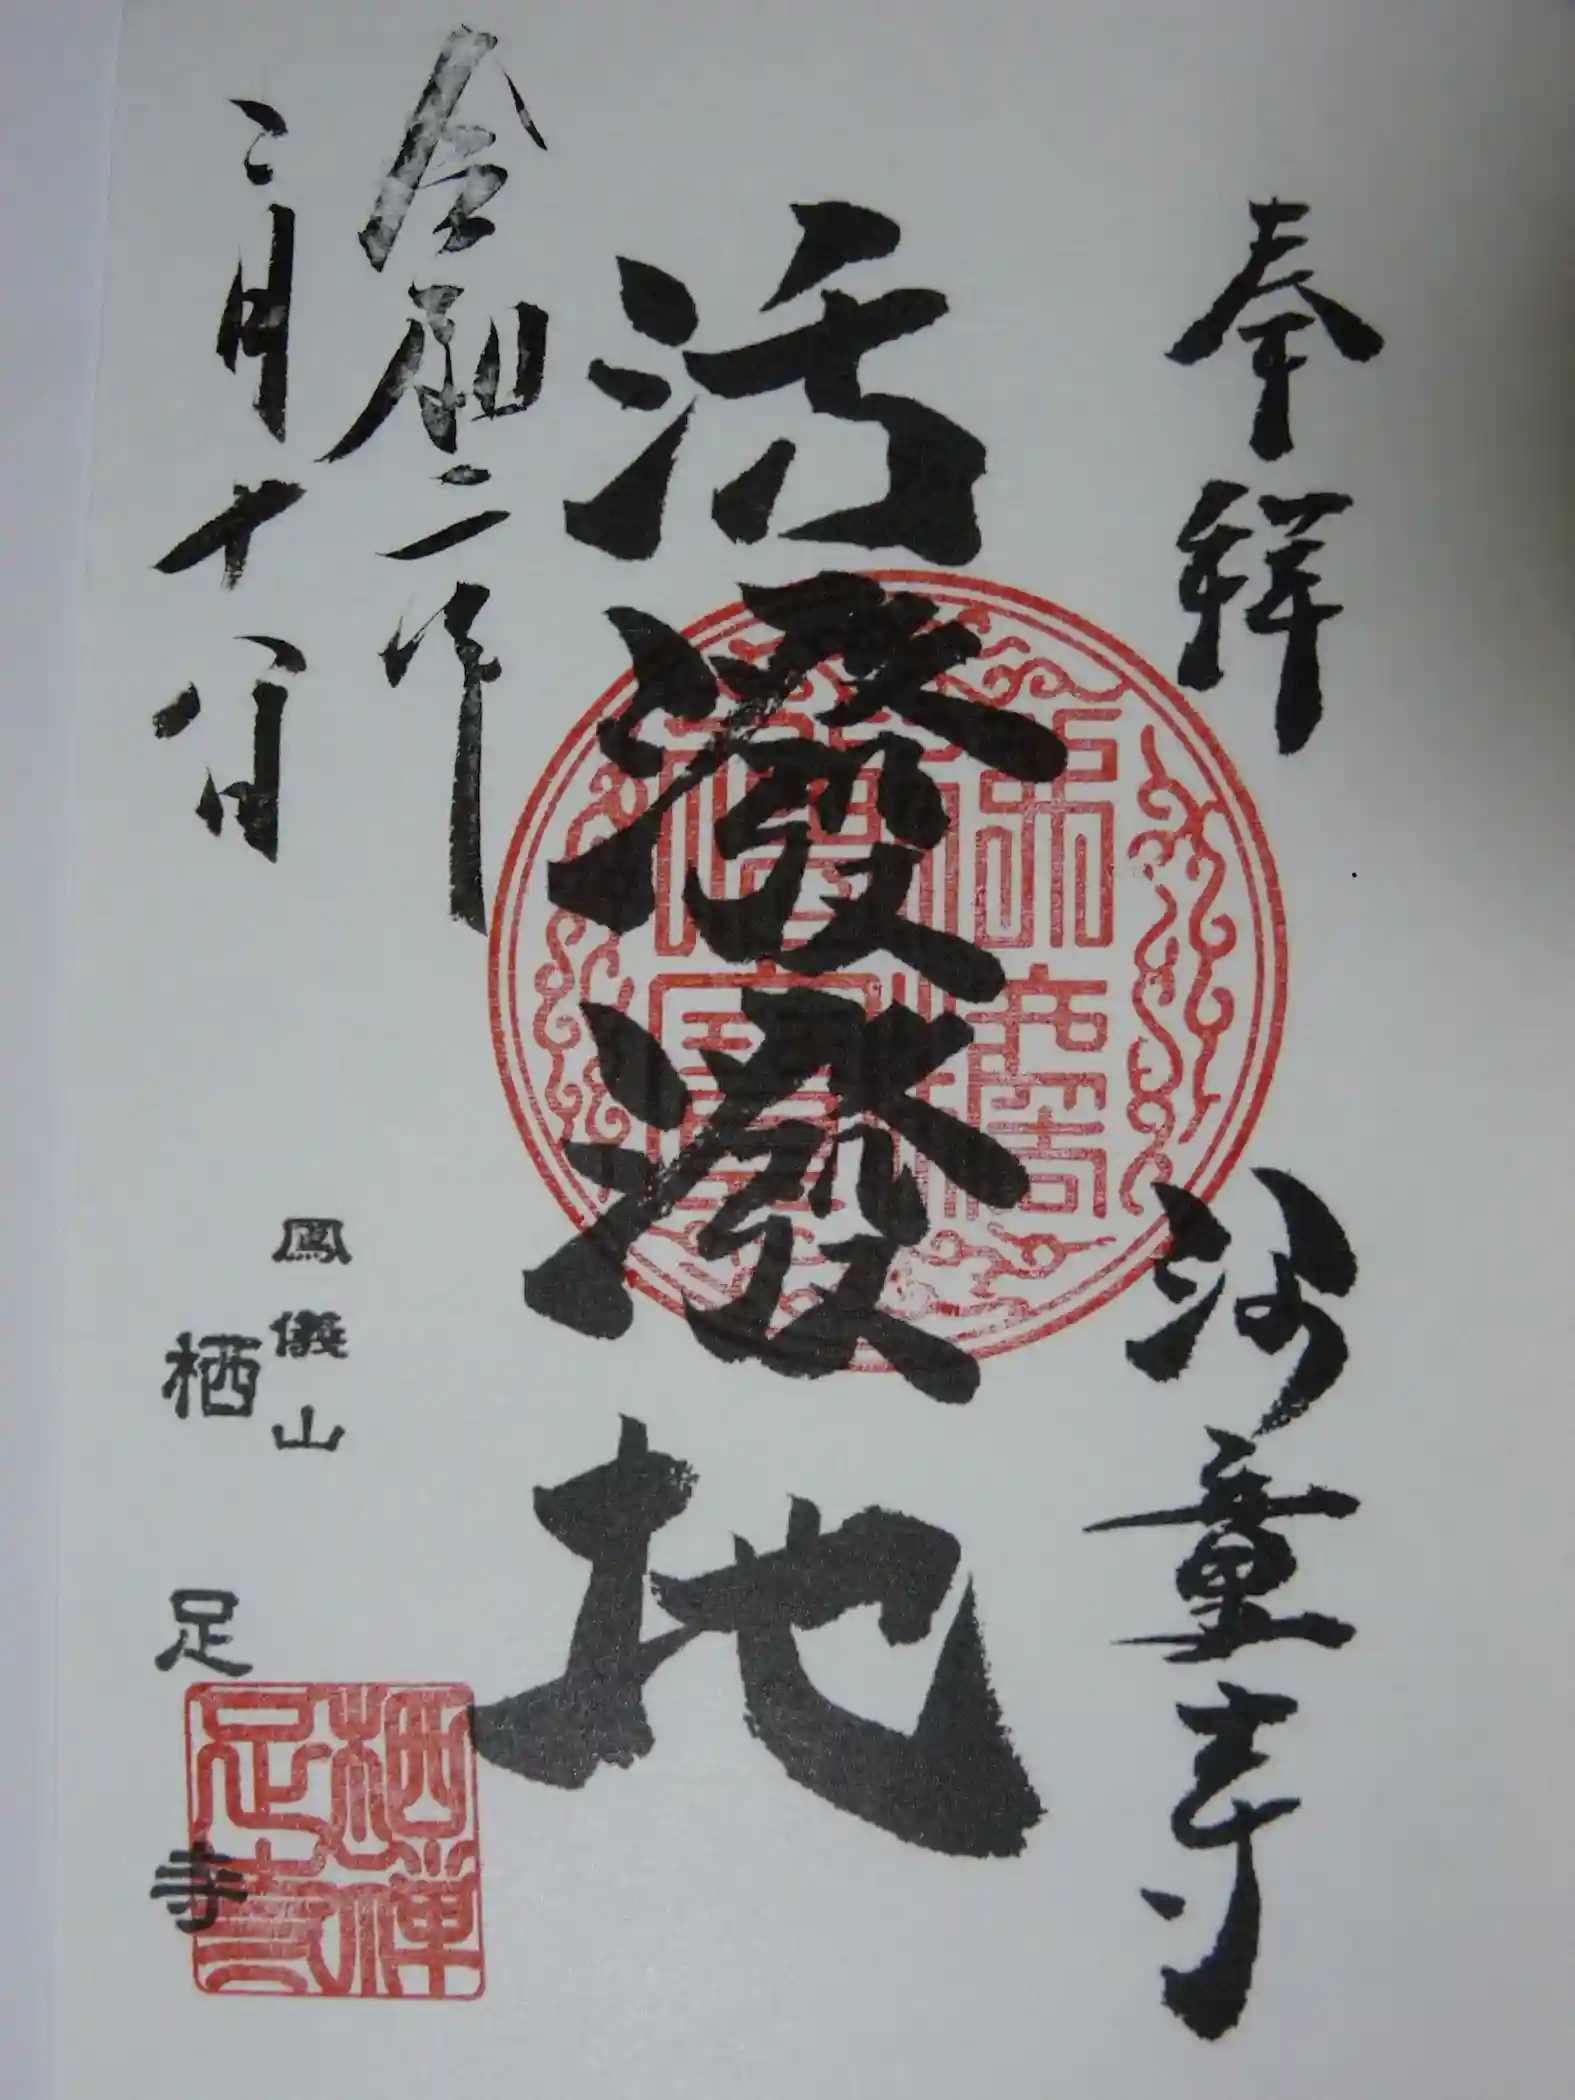 奉拝
河童寺
活潑潑地
令和二年
二月十八日
鳳儀山
栖足寺
栖足
禅寺